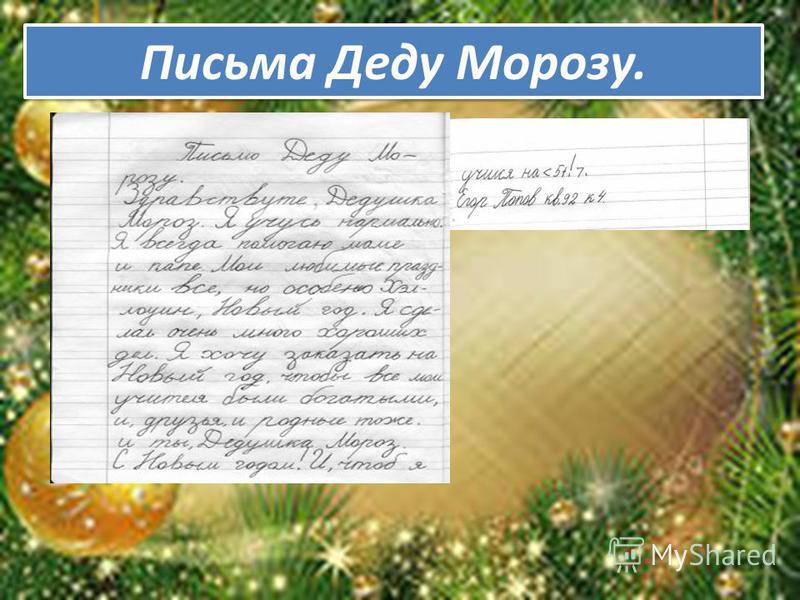 Письма Деду Морозу.
Письмо Деду Мо-
розу.
Здравствуте, Дедушка
Мороз. Я учусь нармально.
Я всегда памогаю маме
и папе. Мои любимые празд-
ники все, но особено Хэл-
лоуин, Новый год. Я сде-
лал очень много хороших
дел. Я хочу заказать на
Новый год, чтобы все мои
учителя были богатыми,
и, друзья, и родные тоже.
и ты, Дедушка Мороз.
С Новым годом! И, чтоб я
учился на <5!
Егор Попов кв.92 к 4.
MyShared